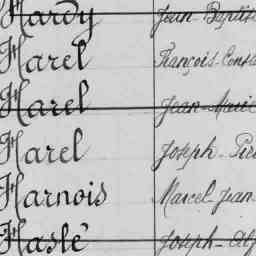 Hardy Jean-Baptis
Harel François Const
Harel Jean-Marie
Harel Joseph-Pie
Harnois Marcel-Jean
Haslé Joseph-Alf